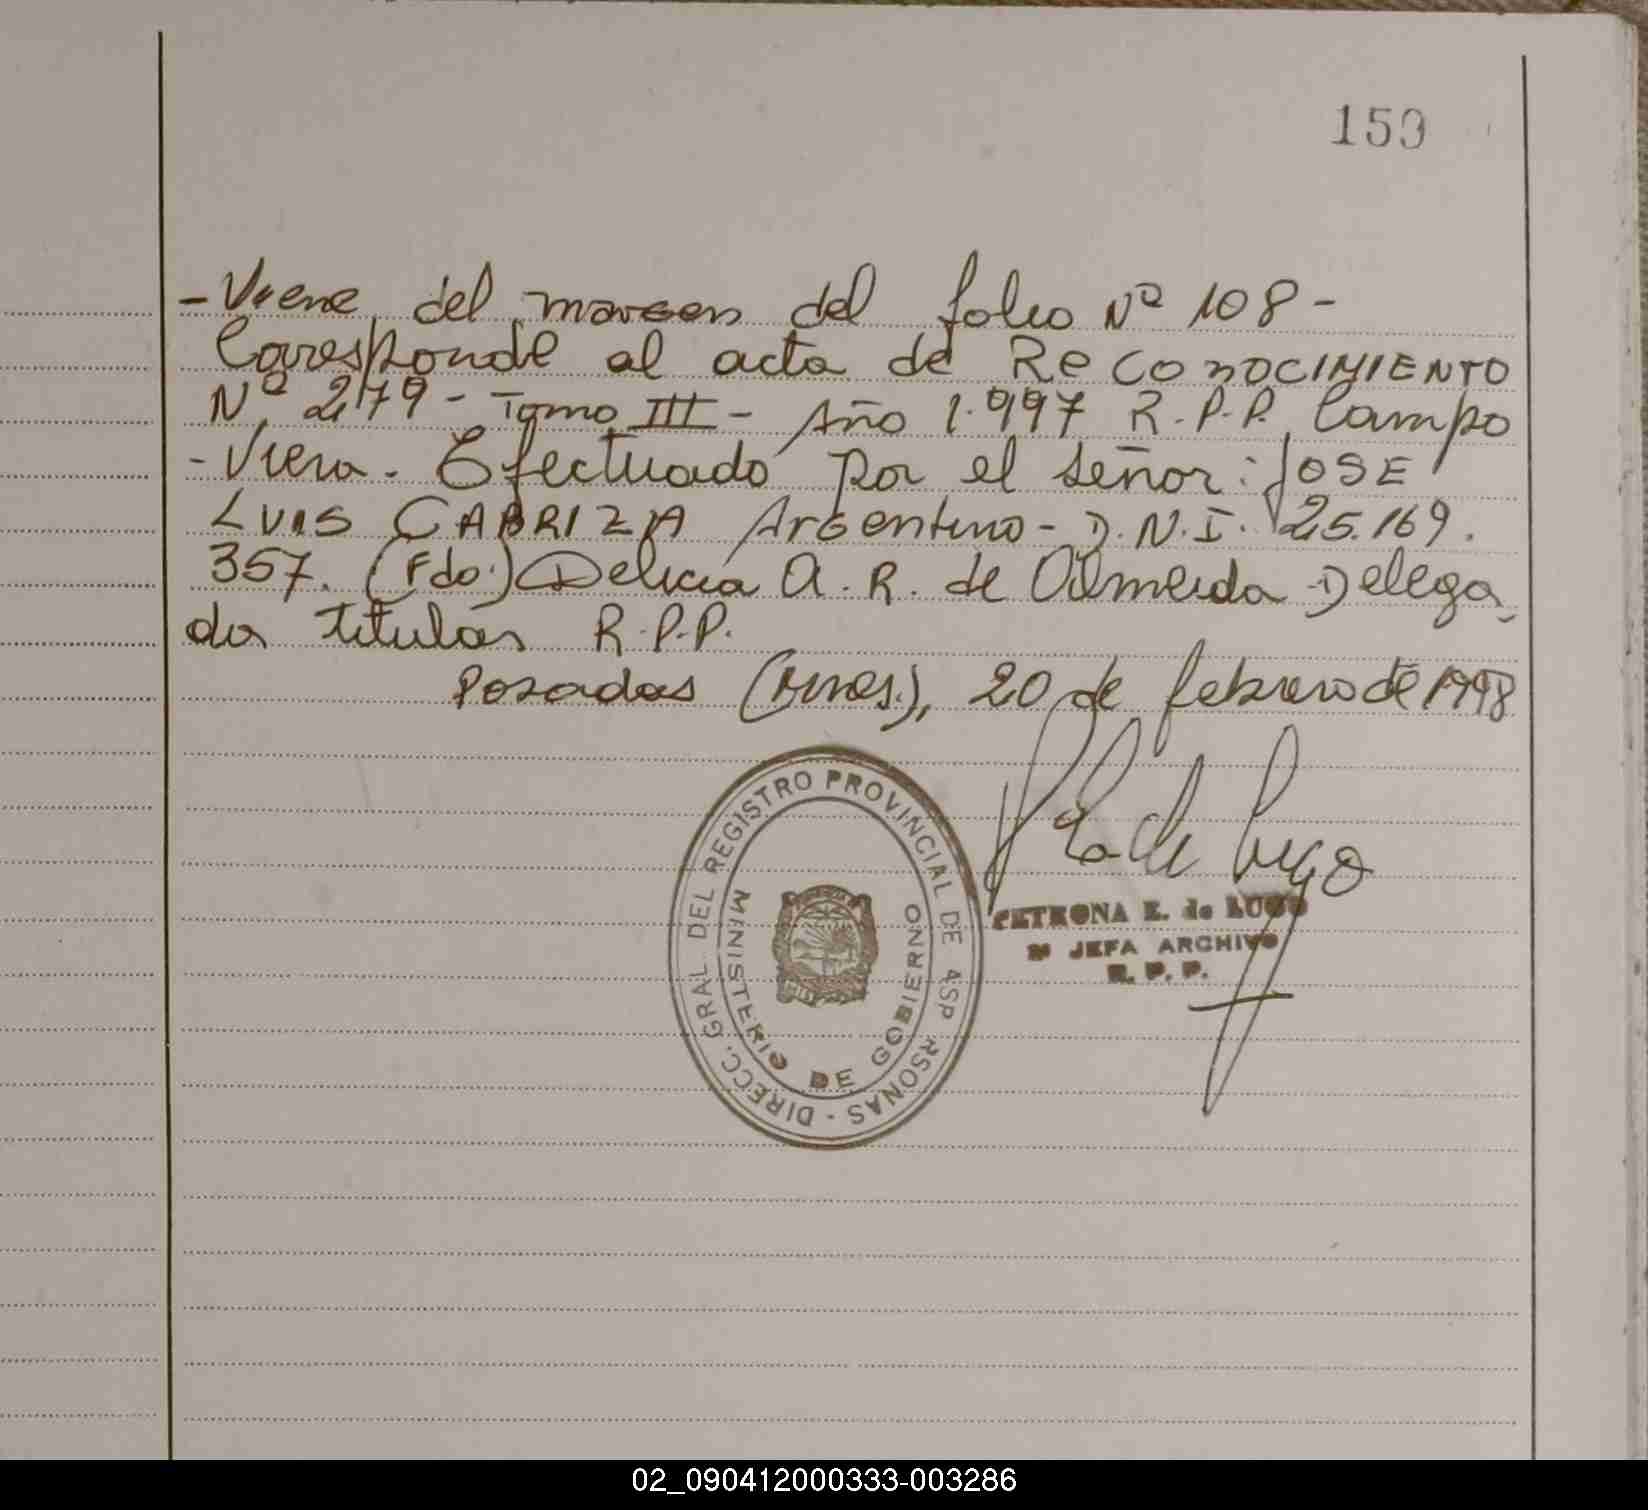 159
- Viene del margen del folio Nº 108 -
Corresponde al acta de ReCONOCIMIENTO
Nº 279 - Tomo III - Año 1.997 R.P.P. Campo
- Viera - Efectuado por el señor: JOSE
LUIS CABRIZA Argentino - D.N.I. 25.169.
357. (Fdo.) Delicia A. R. de Almeida Delega
da titular R.P.P.
Posadas (Mnes.), 20 de febrero de 1998
DIRECC. GRAL. DEL REGISTRO PROVINCIAL DE ASP RSONAS -
MINISTERIO DE GOBIERNO
de Lugo
PETRONA E. de LUGO
JEFA ARCHIVO
R. P. P.
02_090412000333-003286